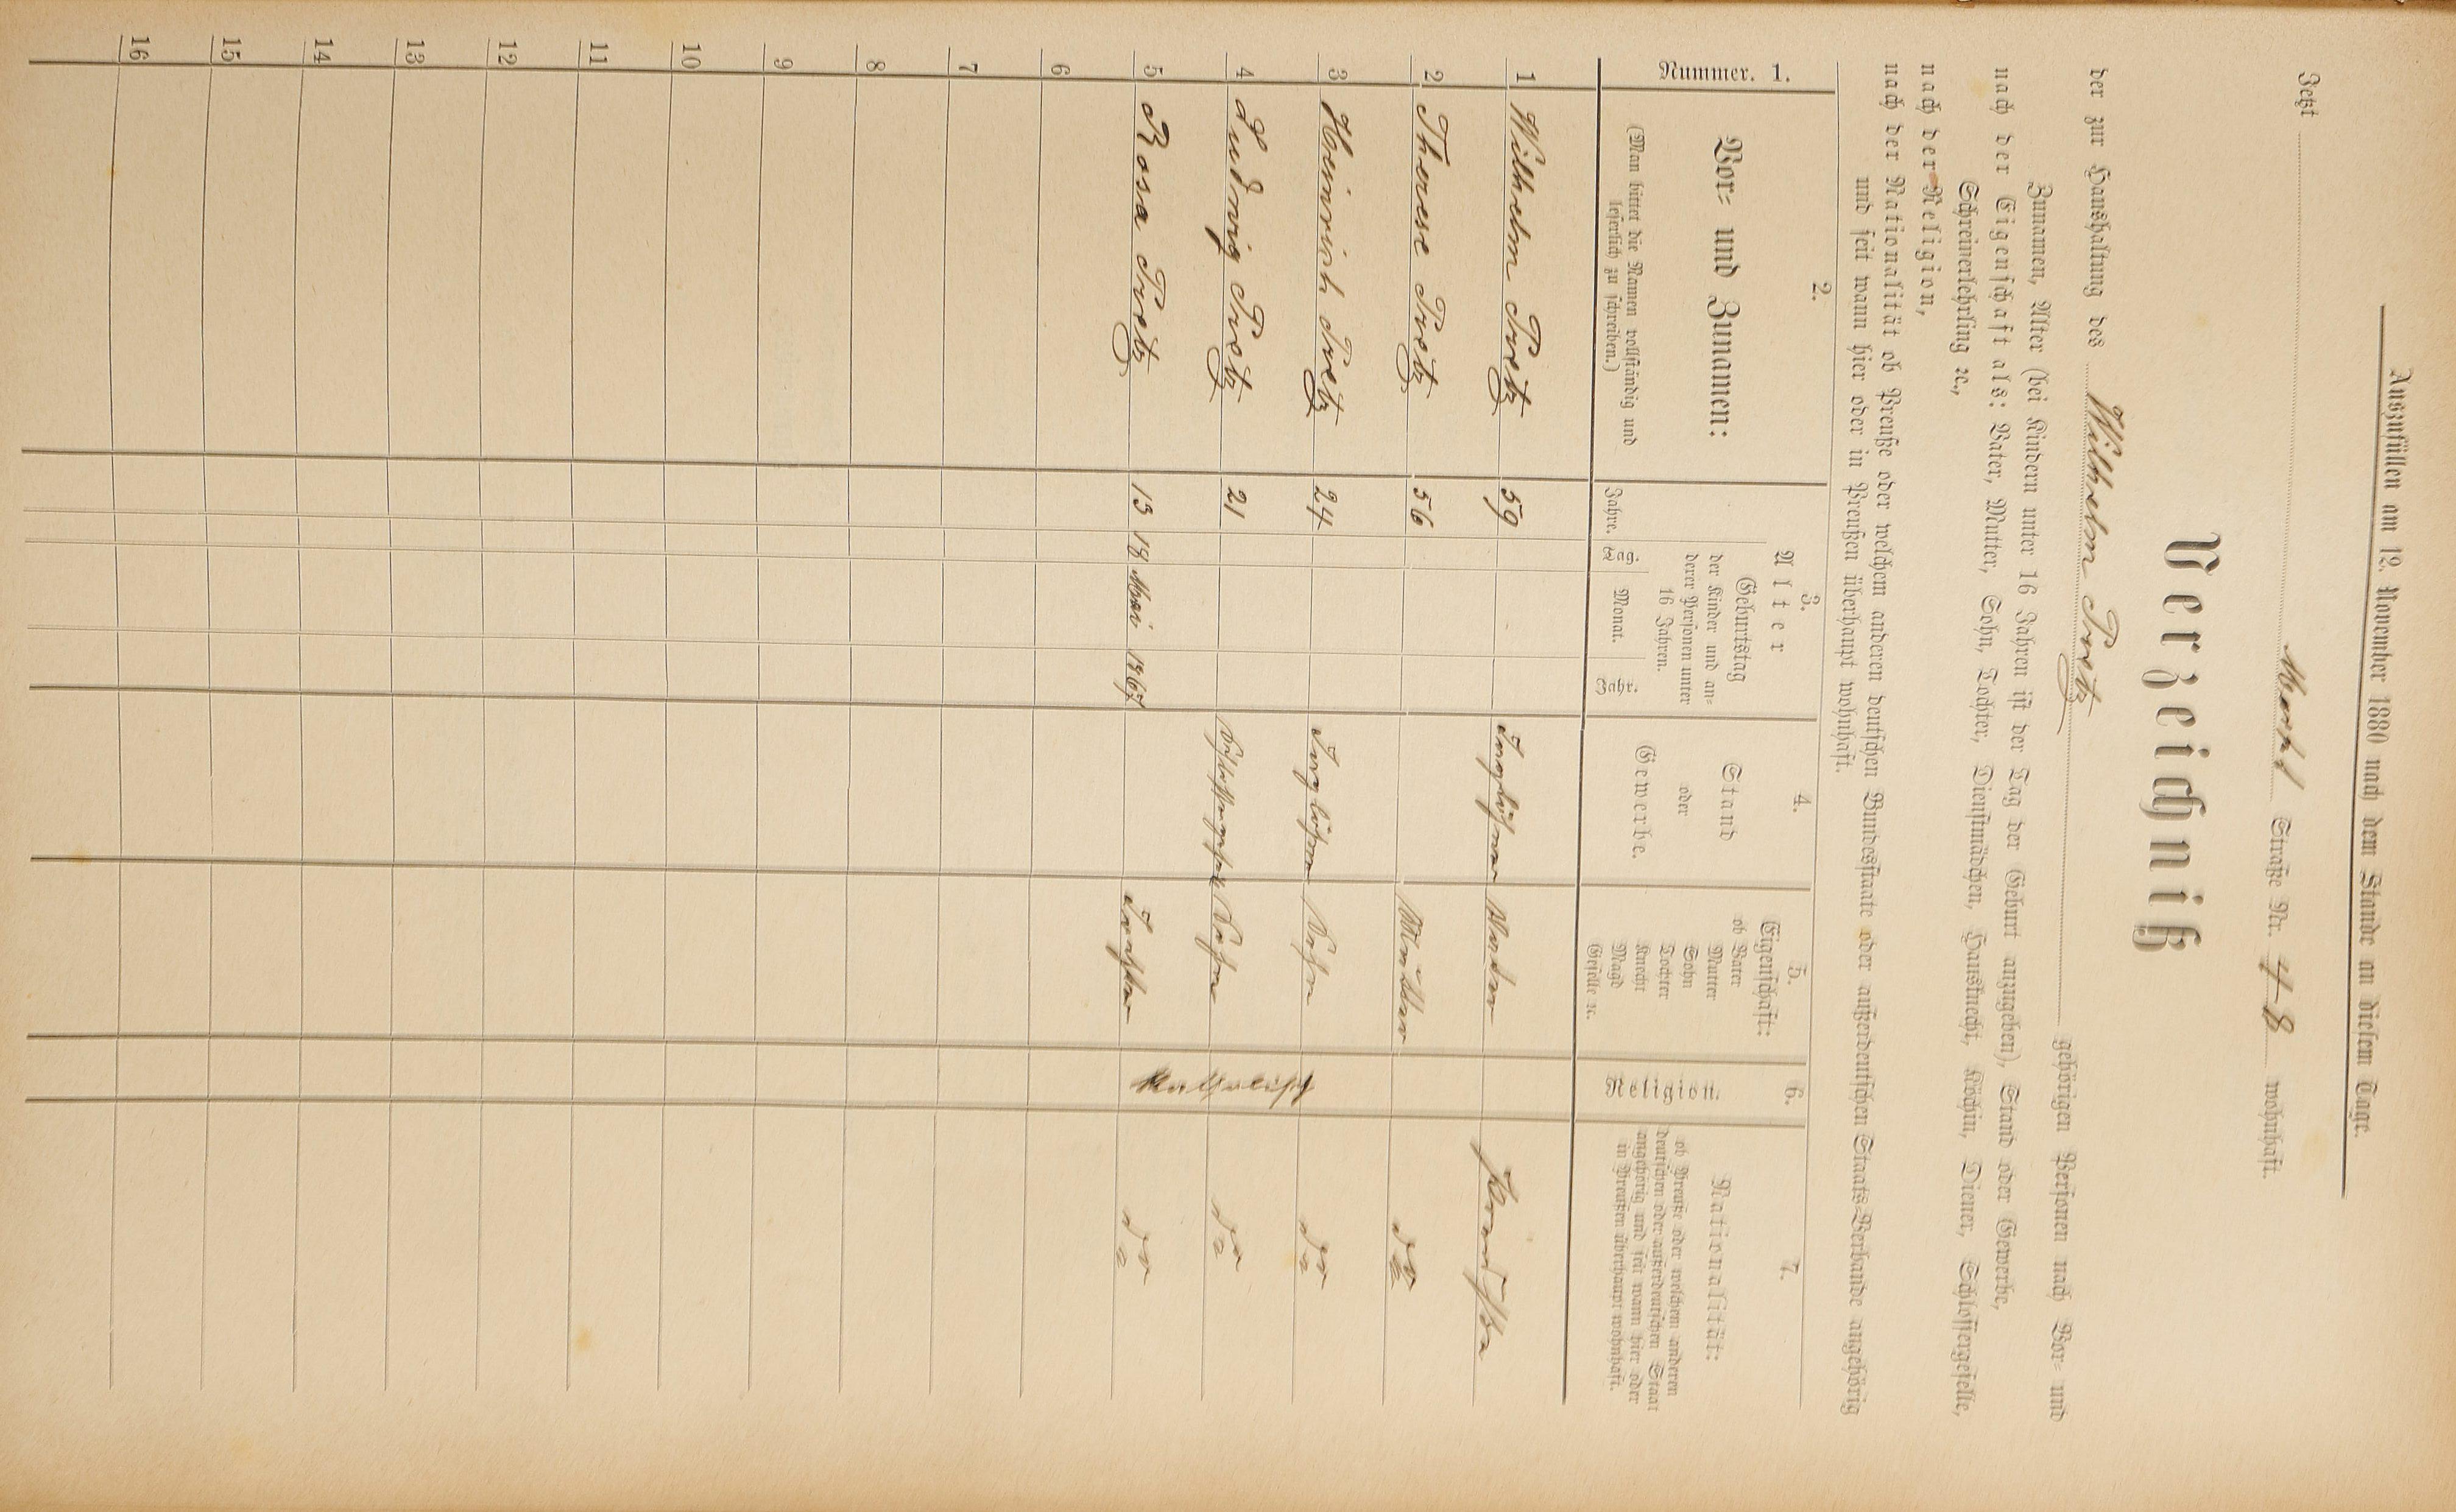 Auszufüllen am 12. November 1880 nach dem Stande an diesem Tage.
Jetzt Markt Straße Nr. 48 wohnhaft.
Verzeichniß
der zur Haushaltung des Wilhelm Tretz gehörigen Personen nach Vor- und
Zunamen, Alter (bei Kindern unter 16 Jahren ist der Tag der Geburt anzugeben), Stand oder Gewerbe,
nach der Eigenschaft als: Vater, Mutter, Sohn, Tochter, Dienstmädchen, Hausknecht, Köchin, Diener, Schlossergeselle,
Schreinerlehrling ꝛc.,
nach der Religion,
nach der Nationalität ob Preuße oder welchem anderen deutschen Bundesstaate oder außerdeutschen Staats-Verbande angehörig
und seit wann hier oder in Preußen überhaupt wohnhaft.
Nummer. 1.
2.
Vor- und Zunamen:
(Man bittet die Namen vollständig und
leserlich zu schreiben.)
3.
Alter
Geburtstag
der Kinder und an-
derer Personen unter
16 Jahren.
Jahre. Tag. Monat. Jahr.
4.
Stand
oder
Gewerbe.
5.
Eigenschaft:
ob Vater
Mutter
Sohn
Tochter
Knecht
Magd
Geselle ꝛc.
6.
Religion.
7.
Nationalität:
ob Preuße oder welchem anderen
deutschen oder außerdeutschen Staat
angehörig und seit wann hier oder
in Preußen überhaupt wohnhaft.
1 Wilhelm Tretz 59 Taglöhner Vater Preuße
2 Therese Tretz 56 Mutter do
3 Heinrich Tretz 24 Taglöhner Sohn do
4 Ludwig Tretz 21 Sohn do
5 Rosa Tretz 13 18 Mai 1867 Tochter do
Katholisch
6
7
8
9
10
11
12
13
14
15
16